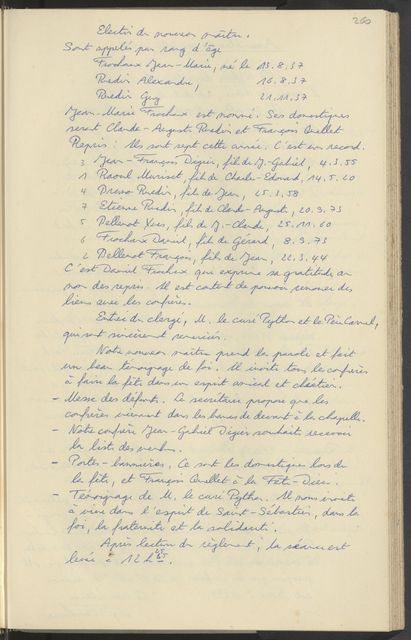 260
Election du nouveau maître.
Sont appelés par rang d'âge
Frochaux Jean-Marie, né le 13.8.37
Ruedin Alexandre, 16.8.37
Ruedin Guy 21.11.37
Jean-Marie Frochaux est nommé. Ses domestiques
seront Claude-August. Ruedin et François Quellet
Repris: Ils sont sept cette année. C'est un record.
3 Jean-François Digier, fils de J.-Gabriel, 4.3.55
1 Raoul Muriset, fils de Charles-Edouard, 14.5.20
4 Bruno Ruedin, fils de Jean, 25.1.58
7 Etienne Ruedin, fils de Claude-August., 20.9.73
5 Pellenot Yves, fils de J.-Claude, 25.11.60
6 Frochaux Daniel, fils de Gérard, 8.9.73
2 Pellenot François, fils de Jean, 22.3.44
C'est Daniel Frochaux qui exprime sa gratitude au
nom des repris. Il est content de pouvoir renouer des
liens avec les confrères.
Entrée du clergé, M. le curé Python et le Père Carmel,
qui sont sincèrement remerciés.
Notre nouveau maître prend la parole et fait
un beau témoignage de foi. Il invite tous les confrères
à faire la fête dans un esprit amical et chrétien.
- Messe des défunts. Le secrétaire propose que les
confrères viennent dans les bancs de devant à la chapelle.
- Notre confrère Jean-Gabriel Digier souhaite recevoir
la liste des membres.
- Portes-bannières. Ce sont les domestiques lors de
la fête, et François Quellet à la Fête-Dieu.
- Témoignage de M. le curé Python. Il nous invite
à vivre dans l'esprit de Saint-Sébastien, dans la
foi, la fraternité et la solidarité.
Après lecture du règlement, la séance est
levée à 12 h 45.